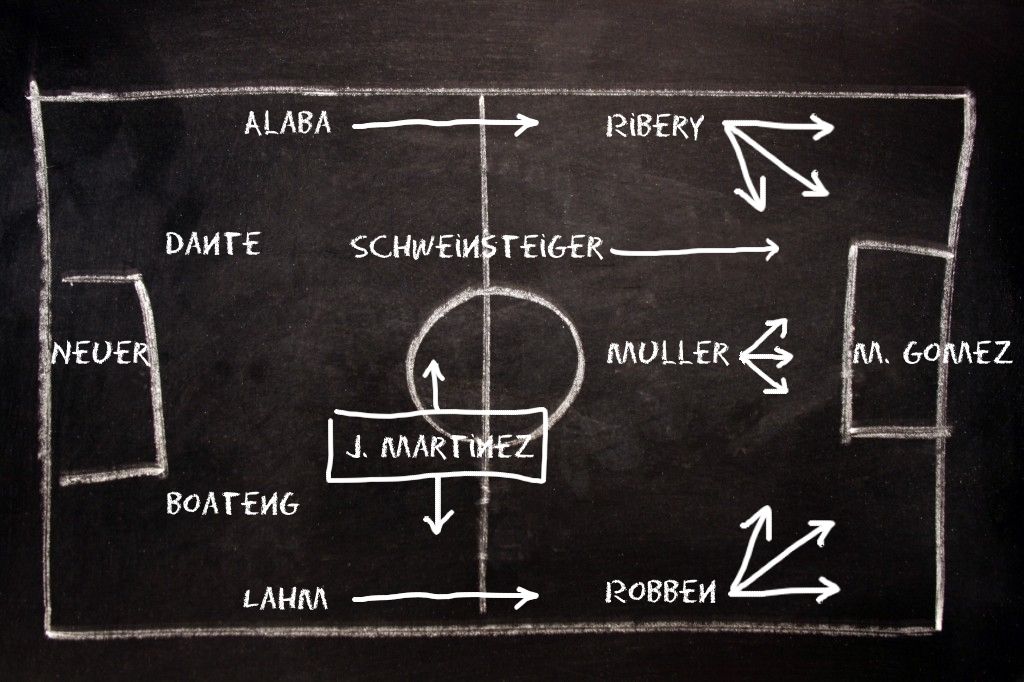 ALABA
RIBERY
DANTE
SCHWEINSTEIGER
NEUER
MULLER
M. GOMEZ
J. MARTINEZ
BOATENG
LAHM
ROBBEN